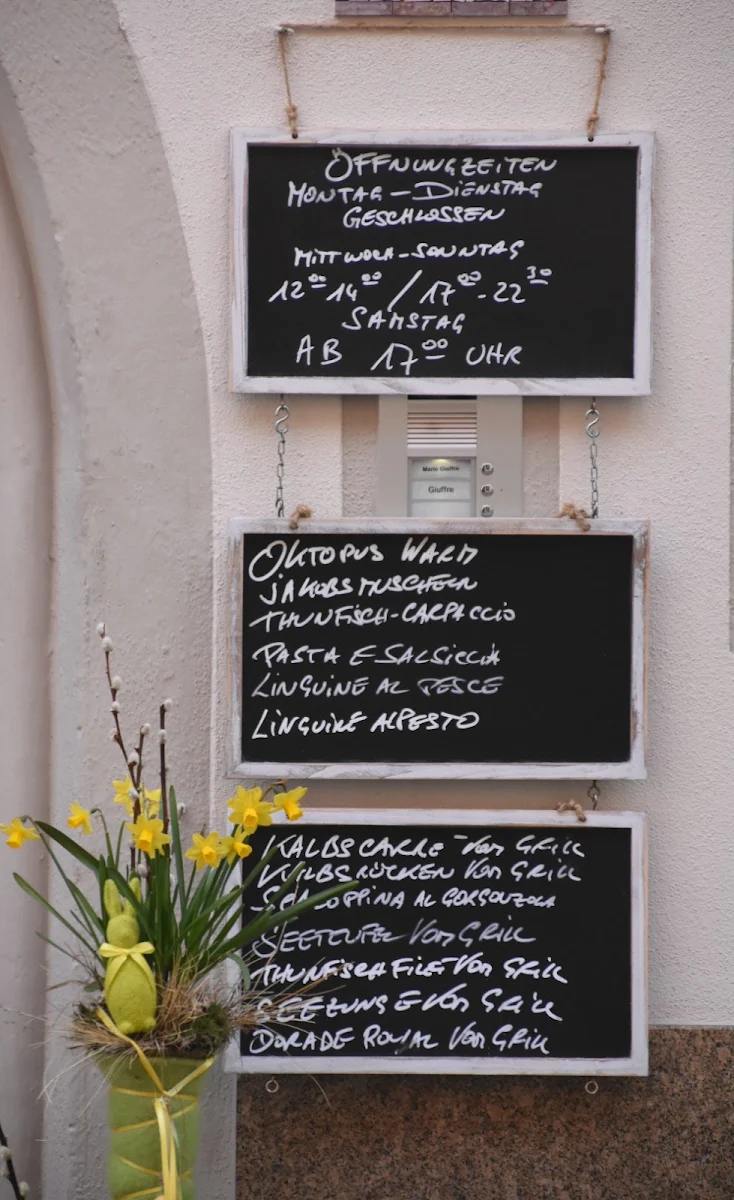 ÖFFNUNGZEITEN
MONTAG - DIENSTAG
GESCHLOSSEN
MITTWOCH - SONNTAG
12⁰⁰ 14⁰⁰ / 17⁰⁰ - 22³⁰
SAMSTAG
AB 17⁰⁰ UHR
Mario Giuffre
Giuffre
OKTOPUS WARM
JAKOBSMUSCHELN
THUNFISCH-CARPACCIO
PASTA E SALSICCIA
LINGUINE AL PESCE
LINGUINE AL PESTO
KALBSCARRE - VOM GRILL
KALBSRÜCKEN VOM GRILL
SCALOPPINA AL GORGONZOLA
SEETEUFEL VOM GRILL
THUNFISCHFILET VOM GRILL
SEEZUNGE VOM GRILL
DORADE ROYAL VOM GRILL